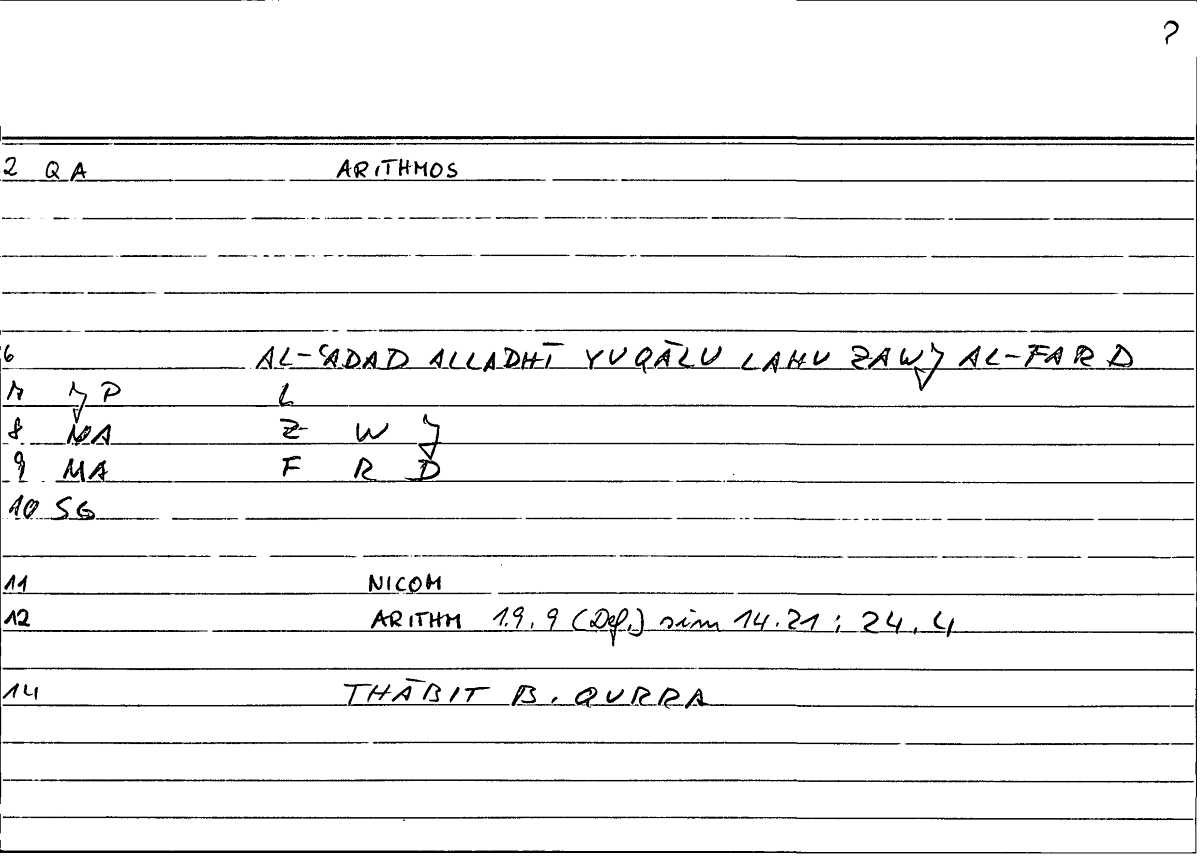 ?
2 QA ARITHMOS
6 AL-ʿADAD ALLADHĪ YUQĀLU LAHU ZAWǦ AL-FARD
7 ǦP L
8 NA Z W Ǧ
9 MA F R D
10 SG
11 NICOM
12 ARITHM 19.9 (Def.) sim 14.21; 24.4
14 THĀBIT B. QURRA